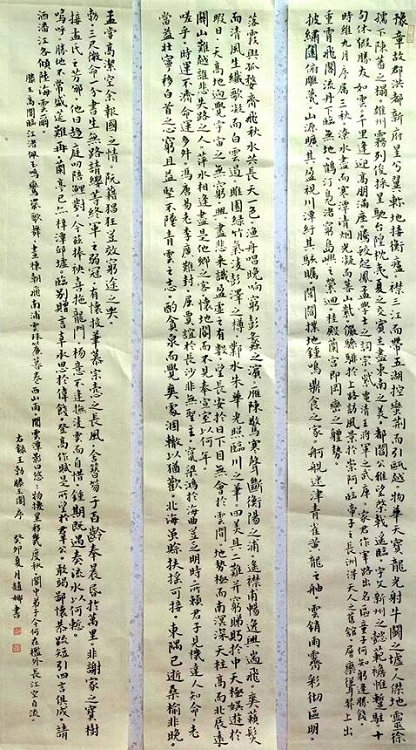 豫章故郡洪都新府星分翼軫地接衡廬襟三江而帶五湖控蠻荊而引甌越物華天寶龍光射牛斗之墟人傑地靈徐
孺下陳蕃之榻雄州霧列俊採星馳臺隍枕夷夏之交賓主盡東南之美都督閻公之雅望棨戟遙臨宇文新州之懿範襜帷暫駐十
旬休假勝友如雲千里逢迎高朋滿座騰蛟起鳳孟學士之詞宗紫電清霜王將軍之武庫家君作宰路出名區童子何知躬逢勝餞
時維九月序屬三秋潦水盡而寒潭清煙光凝而暮山紫儼驂騑於上路訪風景於崇阿臨帝子之長洲得天人之舊館層巒聳翠上出
重霄飛閣流丹下臨無地鶴汀鳧渚窮島嶼之縈迴桂殿蘭宮即岡巒之體勢
披繡闥俯雕甍山原曠其盈視川澤紆其駭矚閭閻撲地鐘鳴鼎食之家舸艦迷津青雀黃龍之舳雲銷雨霽彩徹區明
落霞與孤鶩齊飛秋水共長天一色漁舟唱晚響窮彭蠡之濱雁陣驚寒聲斷衡陽之浦遙襟甫暢逸興遄飛爽籟發
而清風生纖歌凝而白雲遏睢園綠竹氣凌彭澤之樽鄴水朱華光照臨川之筆四美具二難并窮睇眄於中天極娛遊於
暇日天高地迥覺宇宙之無窮興盡悲來識盈虛之有數望長安於日下目吳會於雲間地勢極而南溟深天柱高而北辰遠
關山難越誰悲失路之人萍水相逢盡是他鄉之客懷帝閽而不見奉宣室以何年
嗟乎時運不濟命運多舛馮唐易老李廣難封屈賈誼於長沙非無聖主竄梁鴻於海曲豈乏明時所賴君子見機達人知命老
當益壯寧移白首之心窮且益堅不墜青雲之志酌貪泉而覺爽處涸轍以猶歡北海雖賒扶搖可接東隅已逝桑榆非晚
孟嘗高潔空餘報國之情阮籍猖狂豈效窮途之哭
勃三尺微命一介書生無路請纓等終軍之弱冠有懷投筆慕宗慤之長風舍簪笏于百齡奉晨昏於萬里非謝家之寶樹
接孟氏之芳鄰他日趨庭叨陪鯉對今茲捧袂喜托龍門楊意不逢撫凌雲而自惜鍾期既遇奏流水以何慚
嗚呼勝地不常盛筵難再蘭亭已矣梓澤邱墟臨別贈言幸承恩於偉餞登高作賦是所望於羣公敢竭鄙懷恭疏短引四言俱成請
灑潘江各傾陸海云爾
滕王高閣臨江渚佩玉鳴鸞罷歌舞畫棟朝飛南浦雲珠簾暮卷西山雨閒雲潭影日悠悠物換星移幾度秋閣中帝子今何在檻外長江空自流
右錄王勃滕王閣序 癸卯夏月趙 書